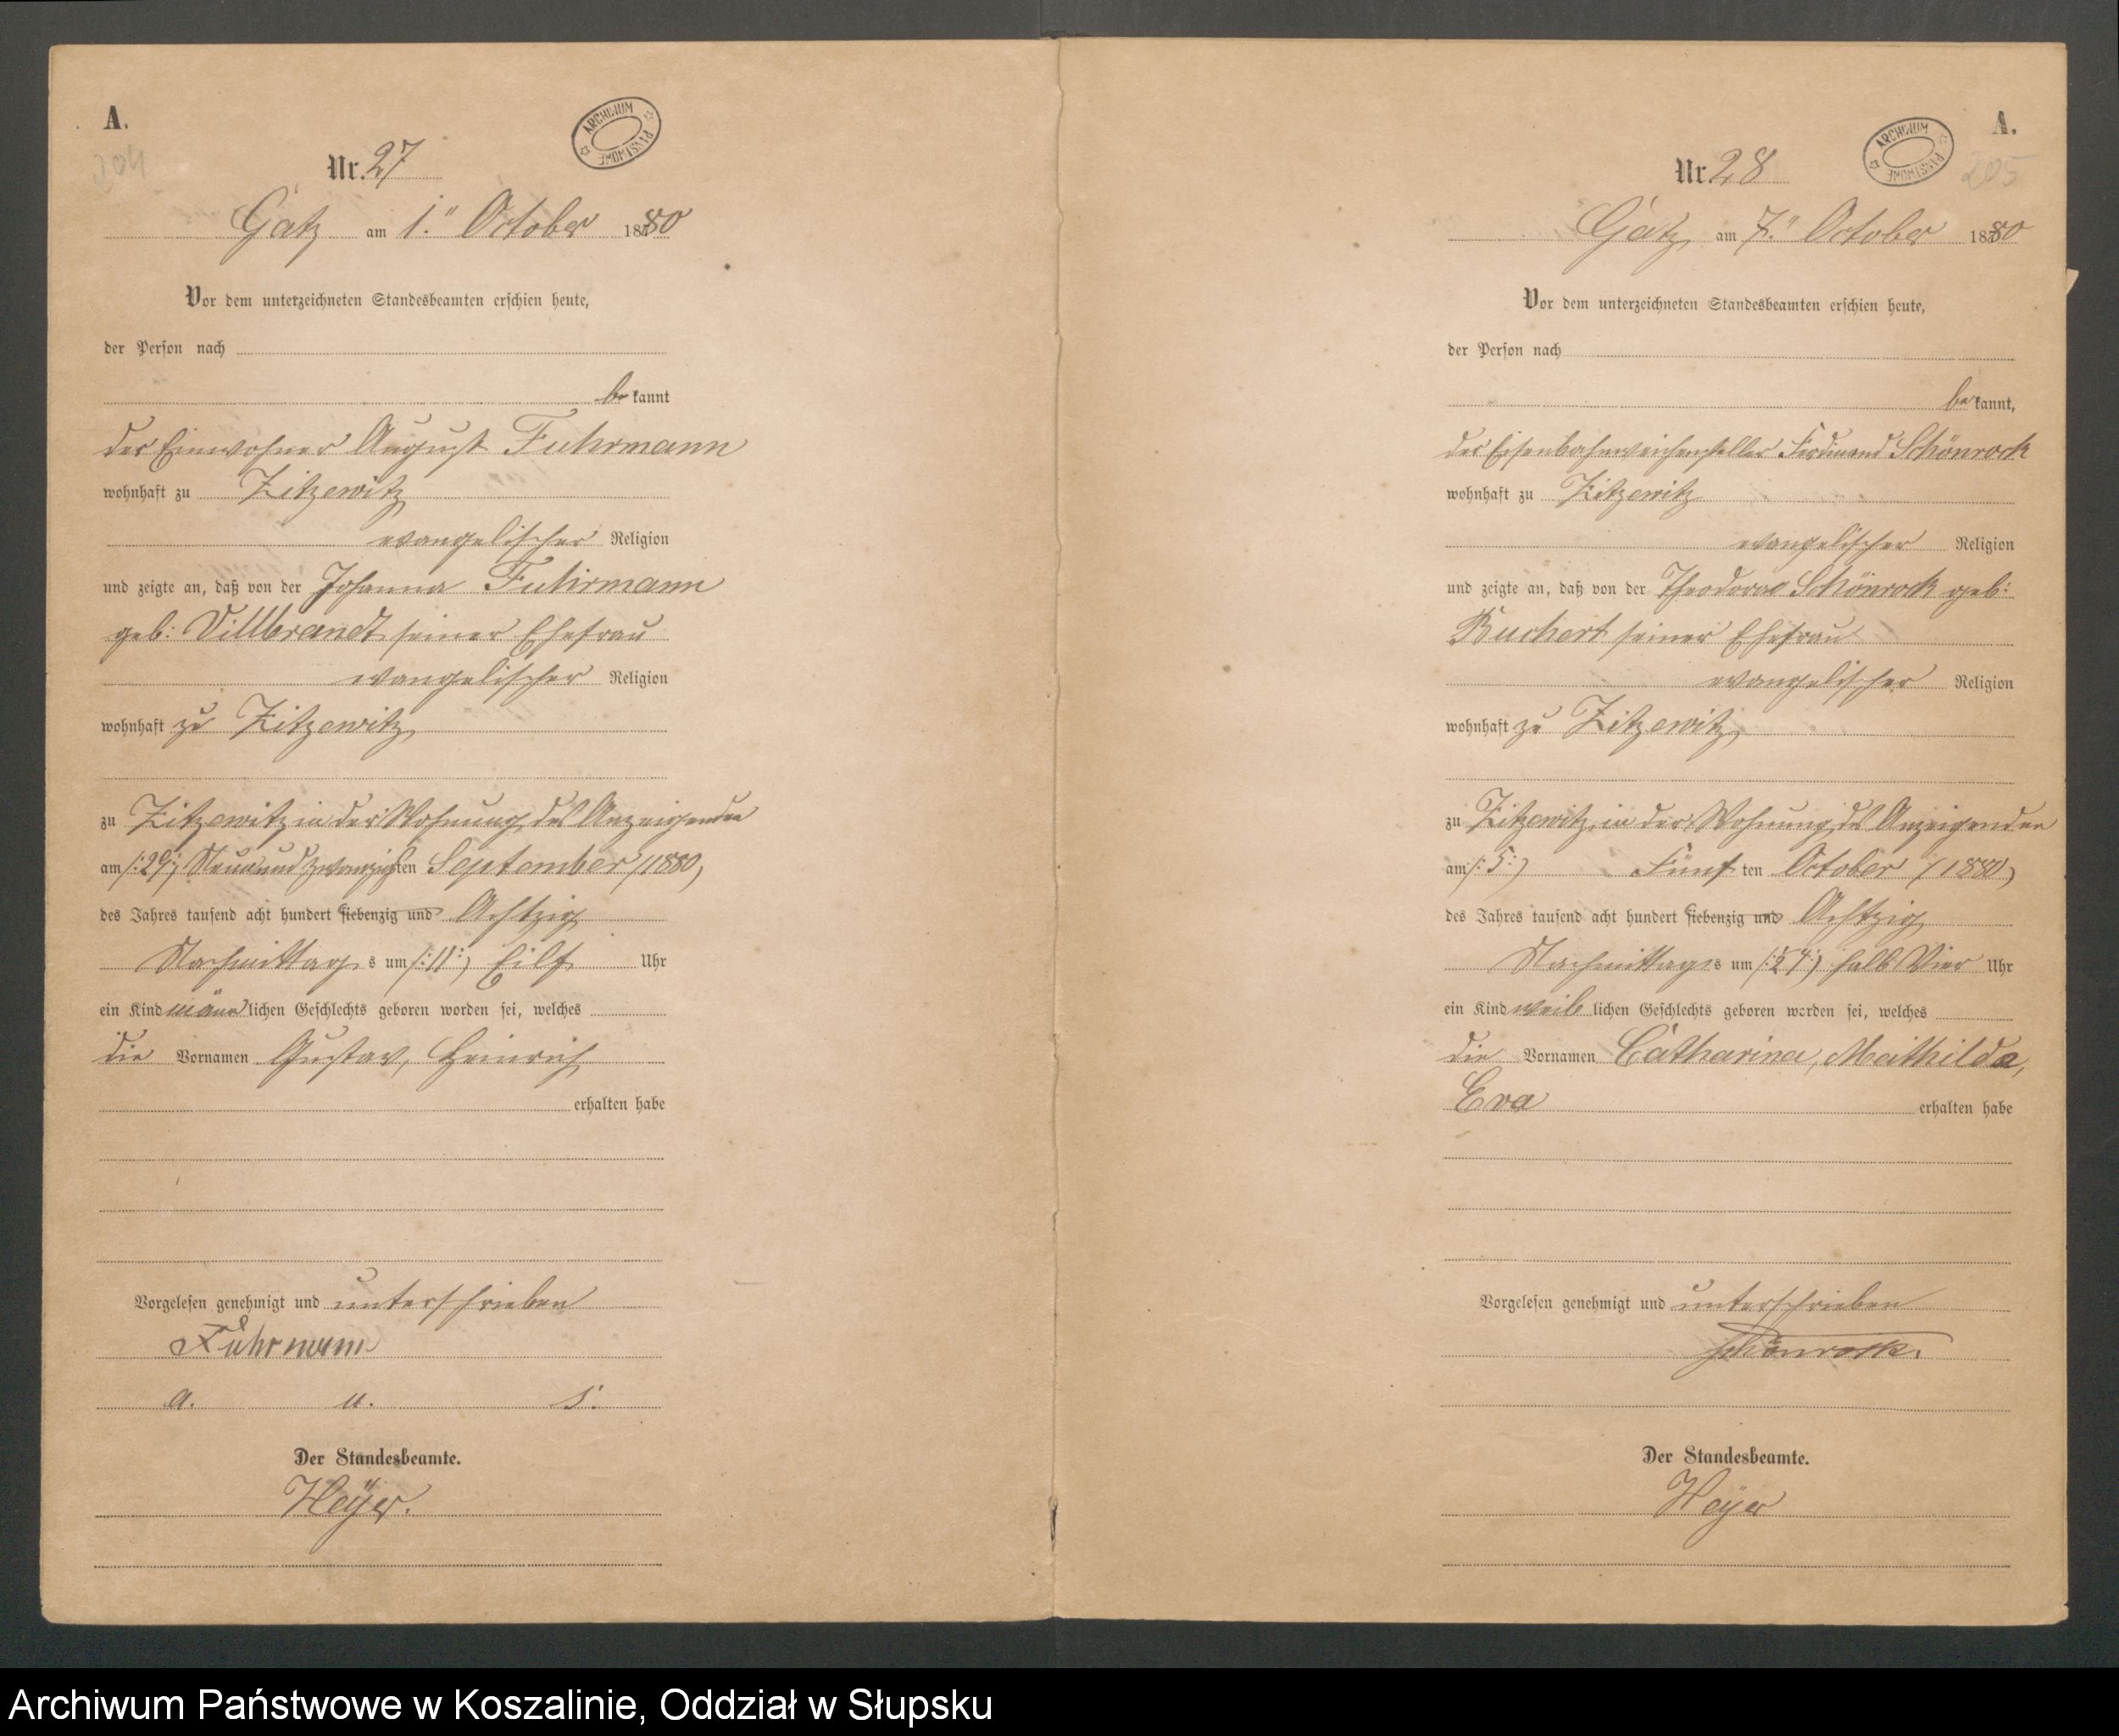 A.
204
Nr. 27
ARCHIWUM PAŃSTWOWE
Gatz am 1." October 1880
Vor dem unterzeichneten Standesbeamten erschien heute,
der Person nach
be kannt
der Einwohner August Fuhrmann
wohnhaft zu Zitzewitz
evangelischer Religion
und zeigte an, daß von der Johanna Fuhrmann
geb: Dillbrandt seiner Ehefrau
evangelischer Religion
wohnhaft zu Zitzewitz
zu Zitzewitz in der Wohnung des Anzeigenden
am /:29:/ Neunundzwanzigsten September /1880,
des Jahres tausend acht hundert siebenzig und Achtzig
Nachmittags um /:11:/ Eilf Uhr
ein Kind männlichen Geschlechts geboren worden sei, welches
die Vornamen Gustav, Heinrich
erhalten habe
Vorgelesen genehmigt und unterschrieben
Fuhrmann
a. u. s.
Der Standesbeamte.
Heÿer.
A.
205
Nr. 28
ARCHIWUM PAŃSTWOWE
Gatz am 7." October 1880
Vor dem unterzeichneten Standesbeamten erschien heute,
der Person nach
be kannt,
der Eisenbahnweichensteller Ferdinand Schönrock
wohnhaft zu Zitzewitz
evangelischer Religion
und zeigte an, daß von der Theodora Schönrock geb:
Buchert seiner Ehefrau
evangelischer Religion
wohnhaft zu Zitzewitz
zu Zitzewitz in der Wohnung des Anzeigenden
am /:5:/ Fünften October /1880,
des Jahres tausend acht hundert siebenzig und Achtzig
Nachmittags um halb Vier Uhr
ein Kind weiblichen Geschlechts geboren worden sei, welches
die Vornamen Catharina, Mathilda,
Eva erhalten habe
Vorgelesen genehmigt und unterschrieben
Schönrock.
Der Standesbeamte.
Heÿer
Archiwum Państwowe w Koszalinie, Oddział w Słupsku